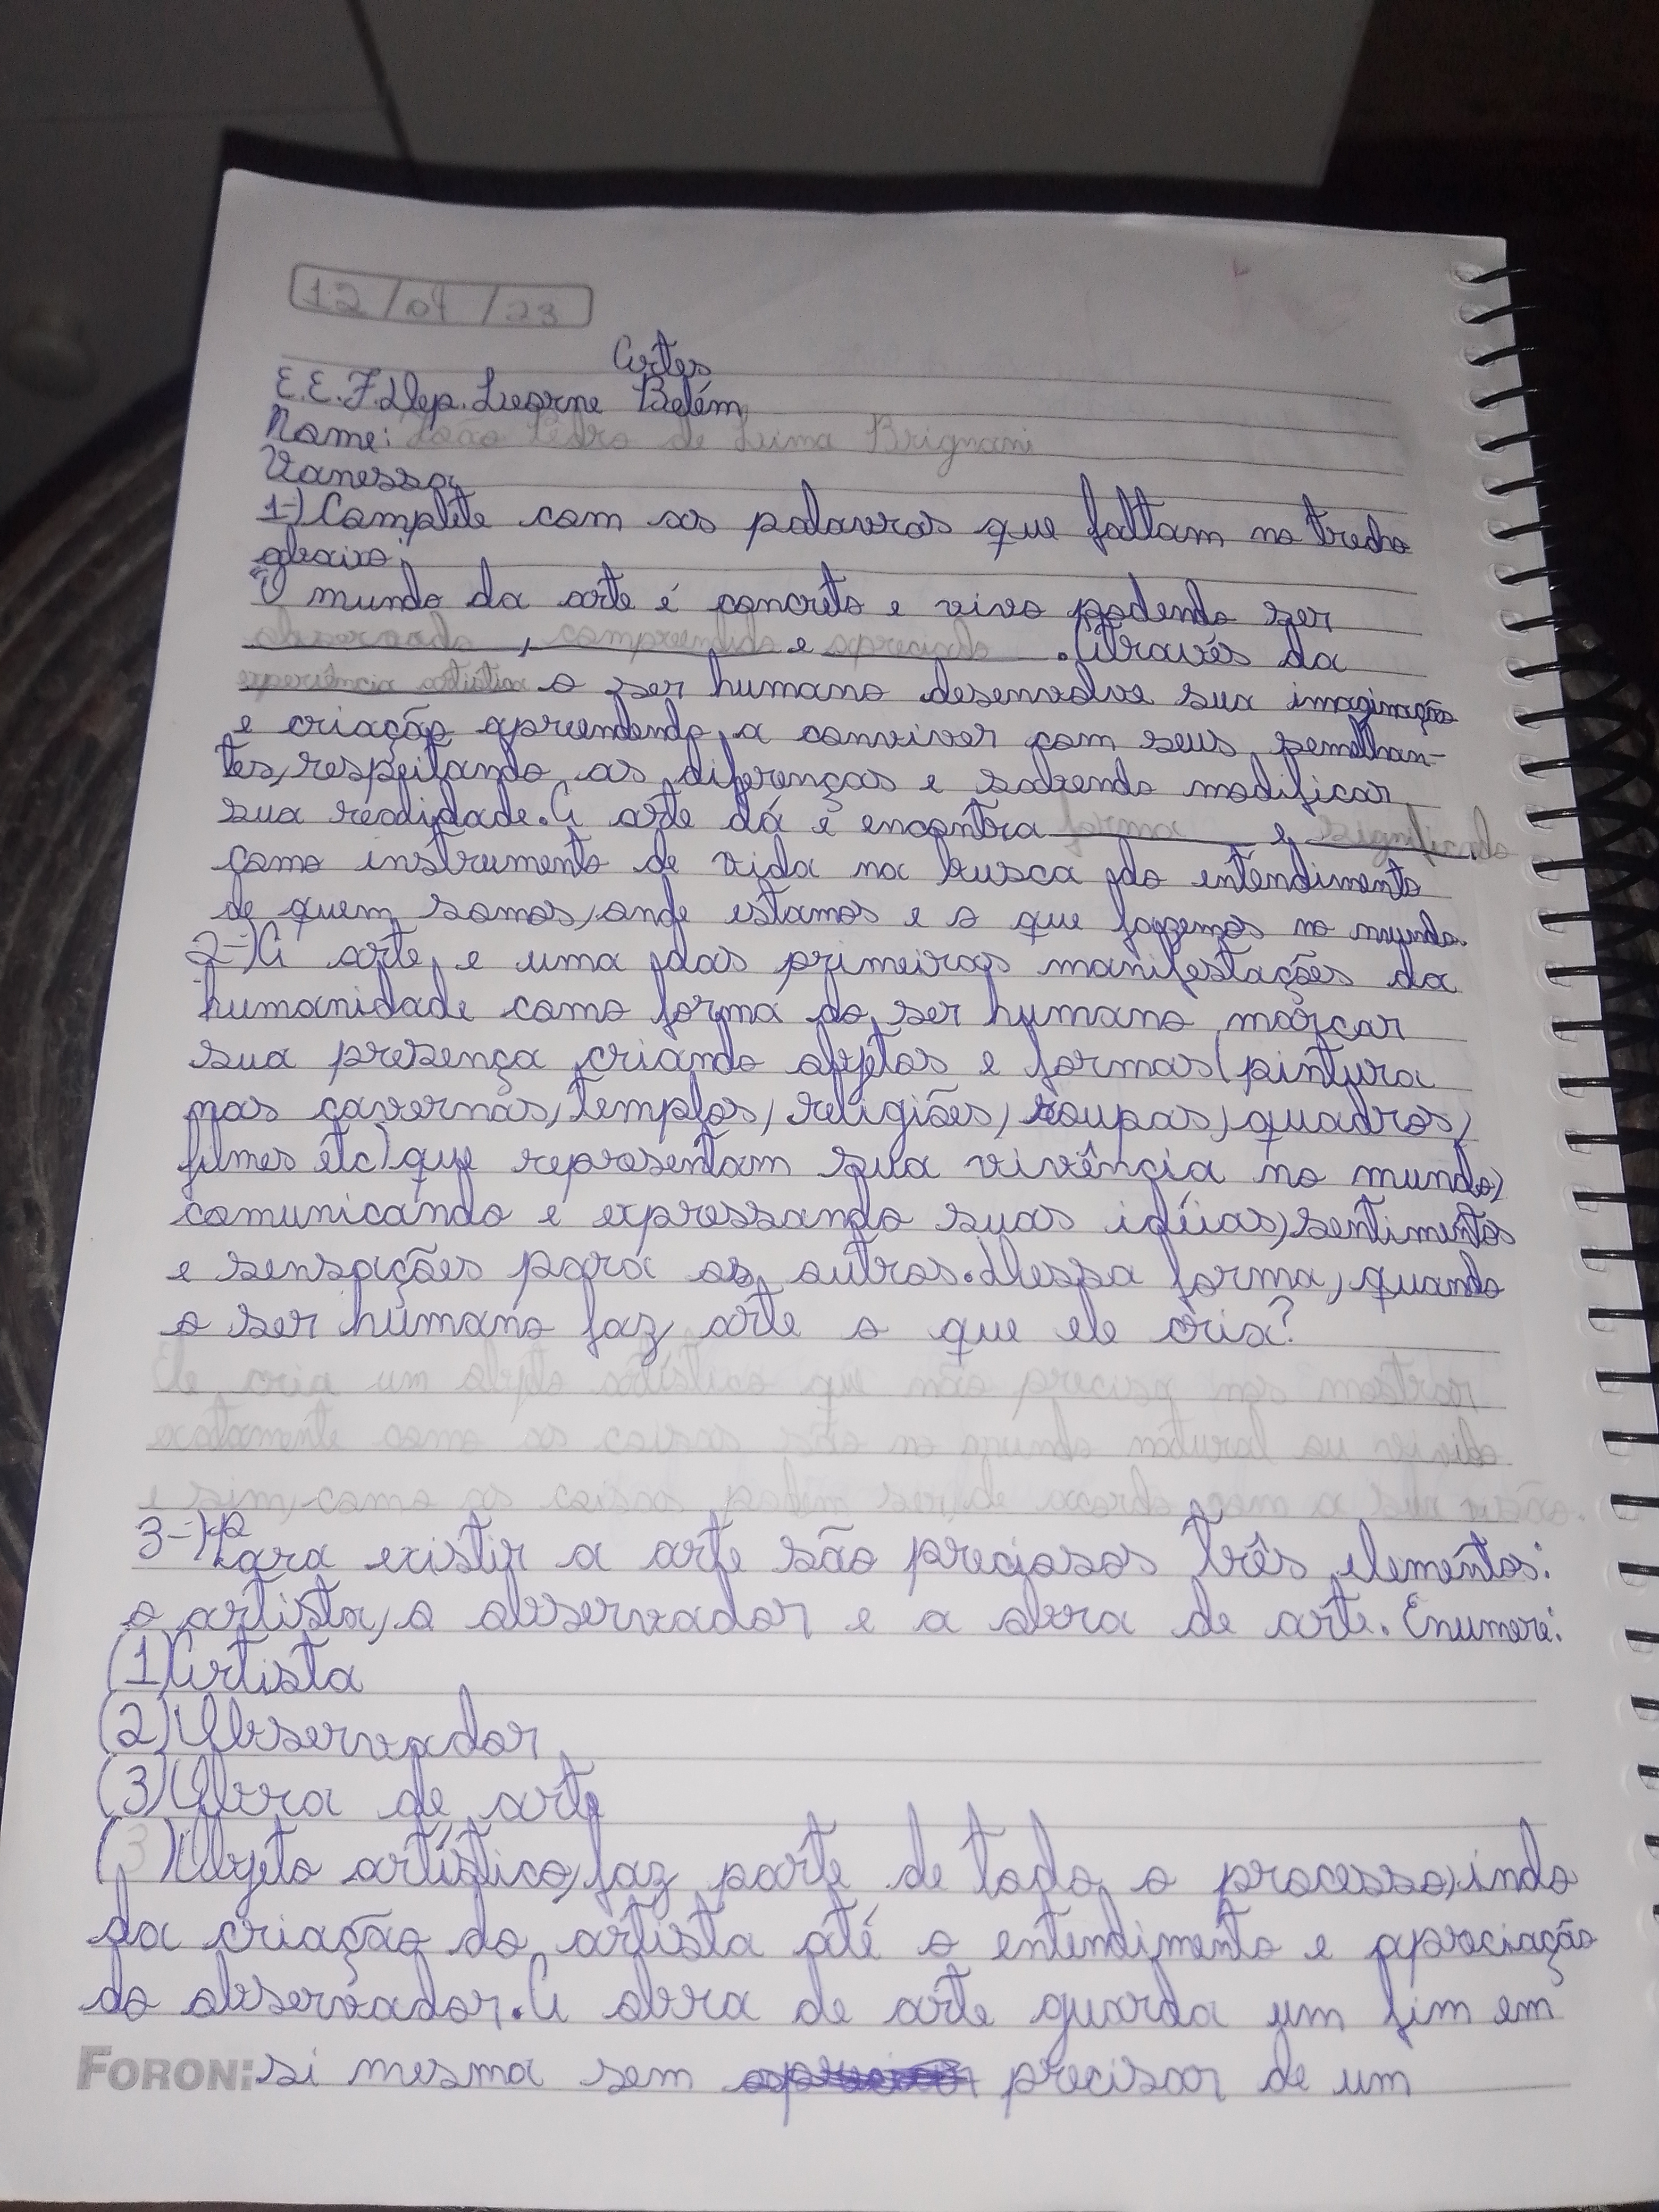 12/04/23
Artes
E.E.F.Dep. Leorne Belém
Nome: João Pedro de Lima Brignani
Vanessa
1-) Complete com as palavras que faltam no trecho
abaixo:
"O mundo da arte é concreto e vivo podendo ser
observado, compreendido e apreciado. Através da
experiência artística o ser humano desenvolve sua imaginação
e criação aprendendo a conviver com seus semelhan-
tes, respeitando as diferenças e sabendo modificar
sua realidade. A arte dá e encontra forma e significado
como instrumento de vida na busca do entendimento
de quem somos, onde estamos e o que fazemos no mundo.
2-) A arte e uma das primeiras manifestações da
humanidade como forma do ser humano marcar
sua presença criando objetos e formas (pintura
nas cavernas, templos, religiões, roupas, quadros,
filmes etc) que representam sua vivência no mundo,
comunicando e expressando suas idéias, sentimentos
e sensações para os outros. Dessa forma, quando
o ser humano faz arte o que ele cria?
Ele cria um objeto artístico que não precisa nos mostrar
exatamente como as coisas são no mundo natural ou vivido
e sim, como as coisas podem ser, de acordo com a sua visão.
3-) Para existir a arte são preciosos três elementos:
o artista, o observador e a obra de arte. Enumere:
(1) Artista
(2) Observador
(3) Obra de arte
(3) Objeto artístico, faz parte de todo o processo, indo
da criação do artista até o entendimento e apreciação
do observador. A obra de arte guarda um fim em
FORONI si mesma sem precisar de um